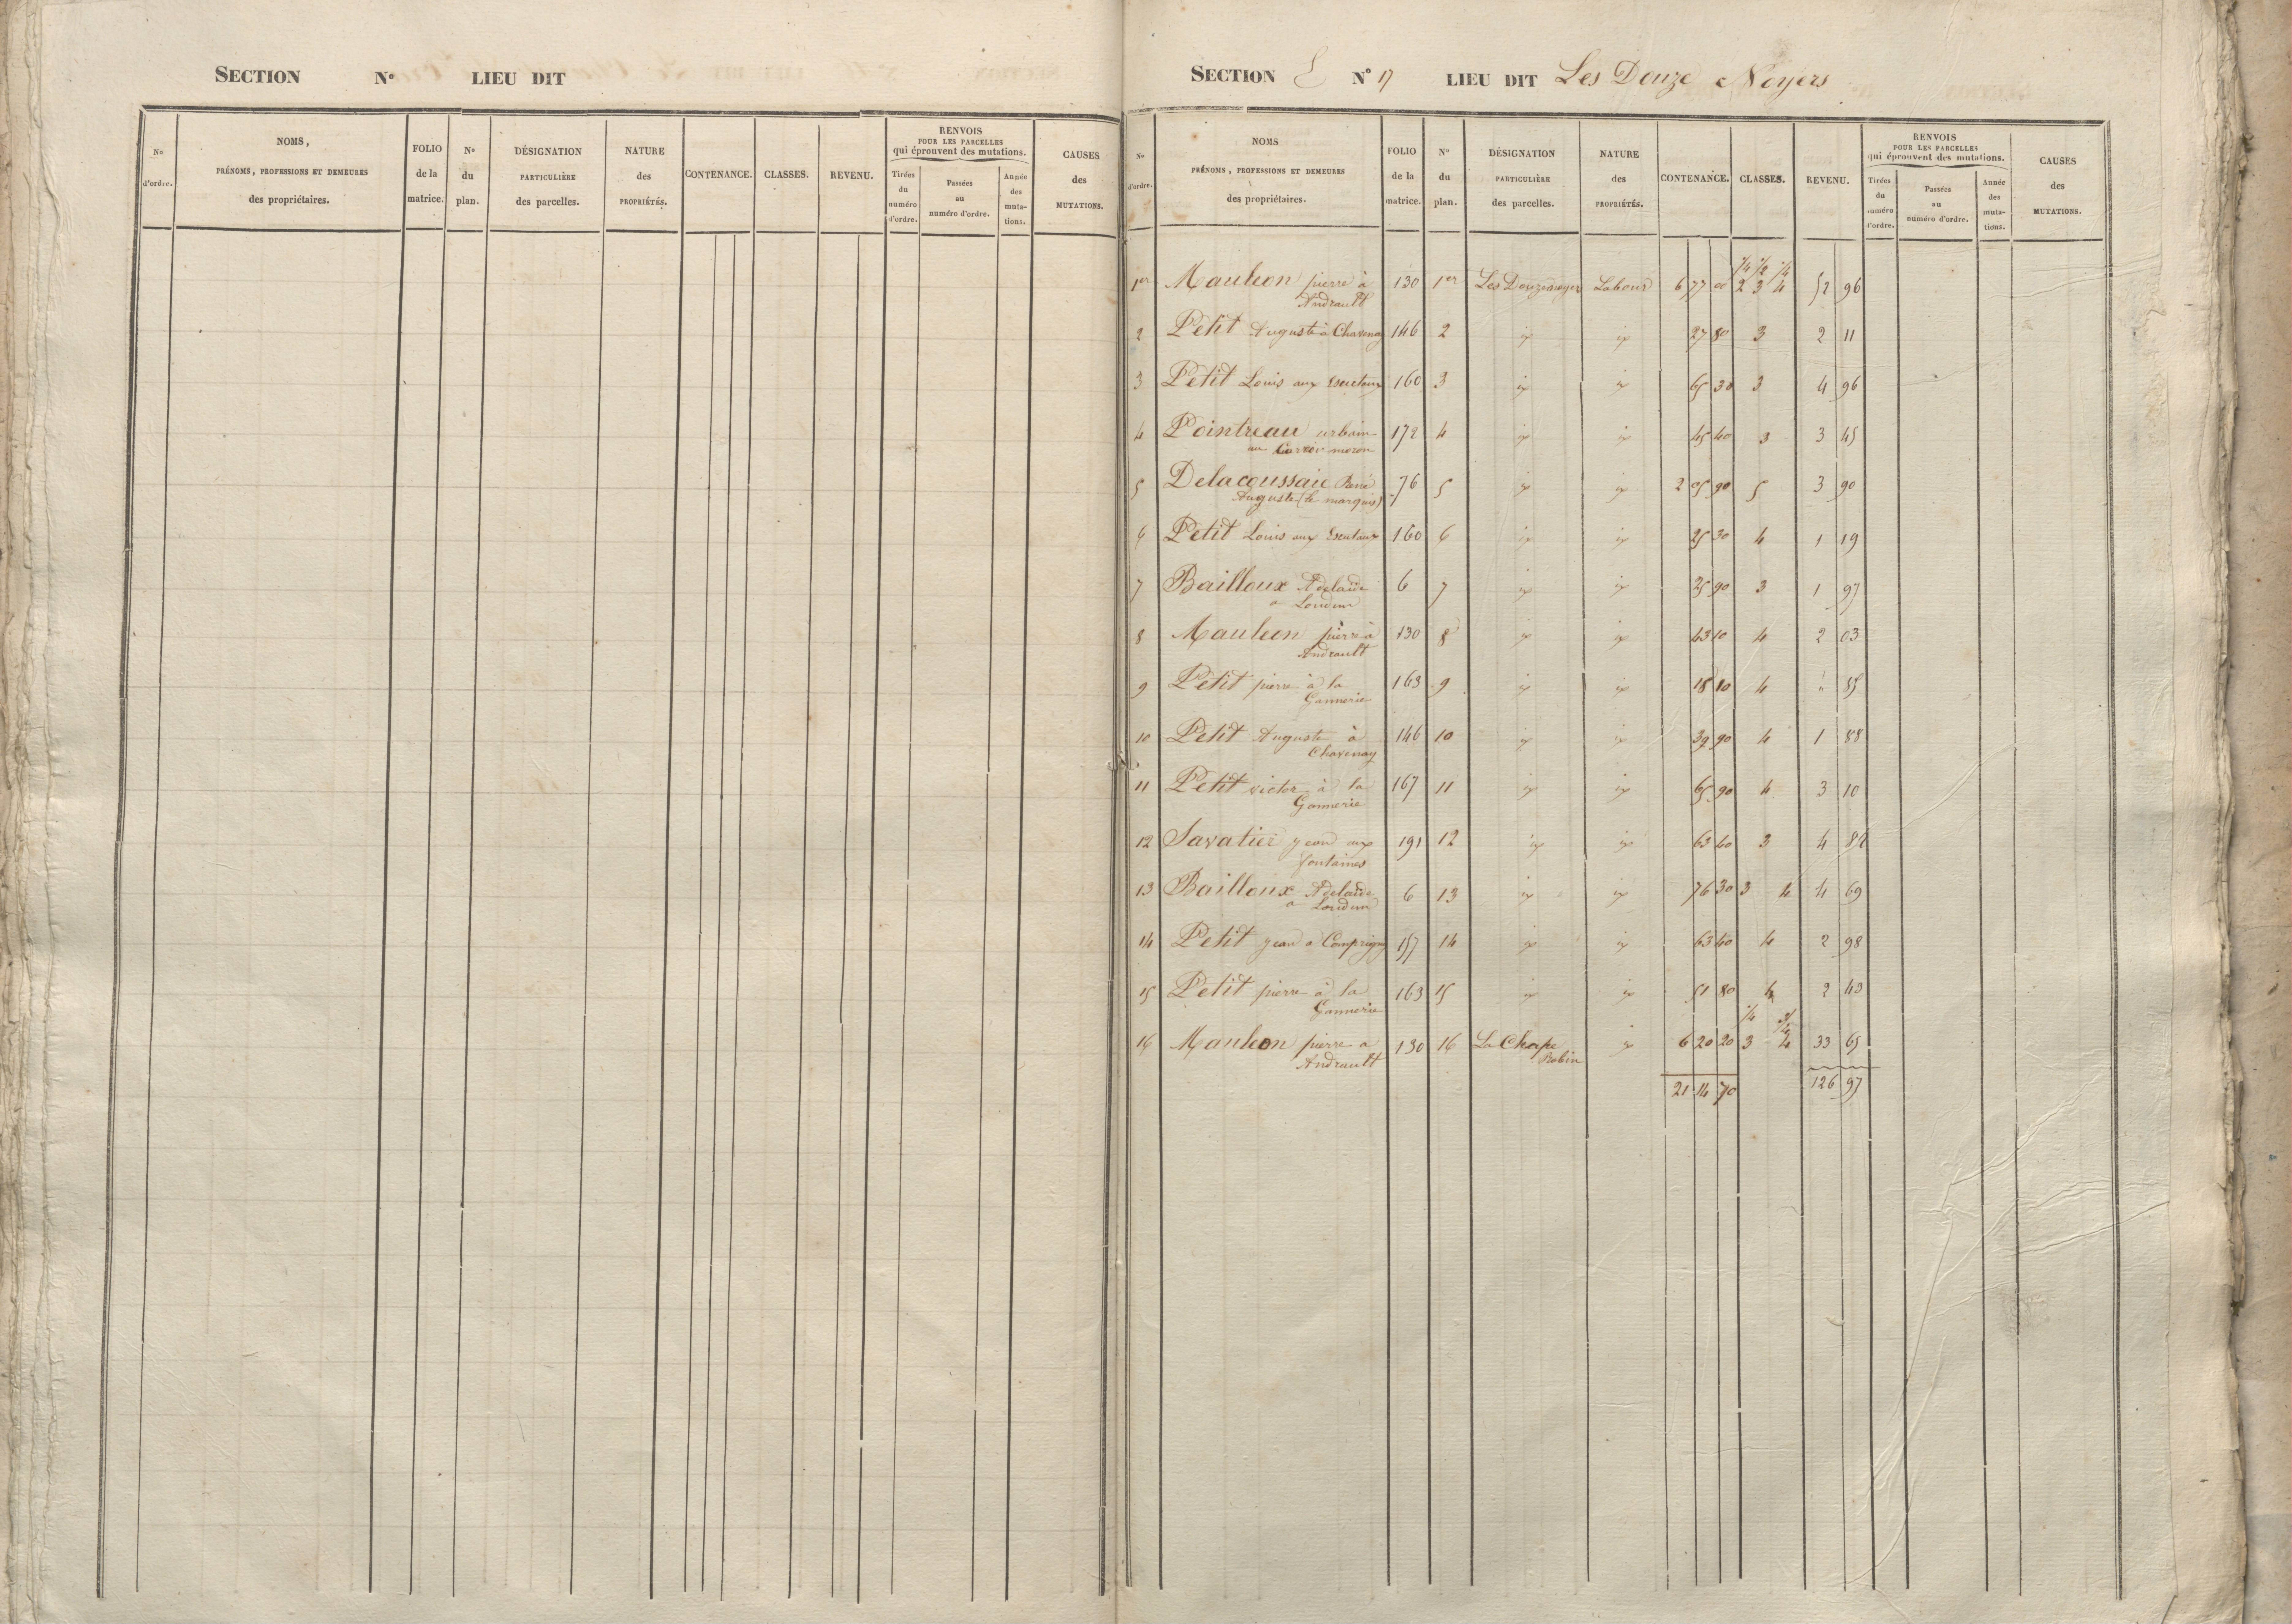 SECTION N° LIEU DIT
N° d'ordre.
NOMS, PRÉNOMS, PROFESSIONS ET DEMEURES des propriétaires.
FOLIO de la matrice.
N° du plan.
DÉSIGNATION PARTICULIÈRE des parcelles.
NATURE des PROPRIÉTÉS.
CONTENANCE.
CLASSES.
REVENU.
RENVOIS POUR LES PARCELLES qui éprouvent des mutations.
Tirées du numéro d'ordre.
Passées au numéro d'ordre.
Année des mutations.
CAUSES des MUTATIONS.
SECTION E N° 17 LIEU DIT Les Douze Noyers
N° d'ordre.
NOMS PRÉNOMS, PROFESSIONS ET DEMEURES des propriétaires.
FOLIO de la matrice.
N° du plan.
DÉSIGNATION PARTICULIÈRE des parcelles.
NATURE des PROPRIÉTÉS.
CONTENANCE.
CLASSES.
REVENU.
RENVOIS POUR LES PARCELLES qui éprouvent des mutations.
Tirées du numéro d'ordre.
Passées au numéro d'ordre.
Année des mutations.
CAUSES des MUTATIONS.
1/4 1/2 1/4
1er Mauleon pierre à 130 1er Les Douze noyers Labour 6 77 00 2 3 4 52 96
Andrault
2 Petit Auguste à Chavenay 146 2 id id 27 80 3 2 11
3 Petit Louis aux 160 3 id id 65 30 3 4 96
4 Pointreau urbain 172 4 id id 45 40 3 3 45
au moron
5 Delacoussaie René 76 5 id id 2 05 90 5 3 90
Auguste (le marquis)
6 Petit Louis aux 160 6 id id 25 30 4 1 19
7 Bailloux Adelaide 6 7 id id 25 90 3 1 97
a Loudun
8 Mauleon pierre à 130 8 id id 43 10 4 2 03
Andrault
9 Petit pierre à la 163 9 id id 18 10 4 " 85
Gannerie
10 Petit Auguste à 146 10 id id 39 90 4 1 88
Chavenay
11 Petit victor à la 167 11 id id 65 90 4 3 10
Gannerie
12 Savatier jean aux 191 12 id id 63 40 3 4 82
fontaines
13 Bailloux Adelaide 6 13 id id 76 30 3 4 4 69
a Loudun
14 Petit jean a Comprigny 157 14 id id 63 40 4 2 98
15 Petit pierre à la 163 15 id id 51 80 4 2 43
Gannerie
1/4 3/4
16 Mauleon pierre a 130 16 La Chape id 6 20 20 3 4 33 65
Andrault Robin
21 14 70 126 97